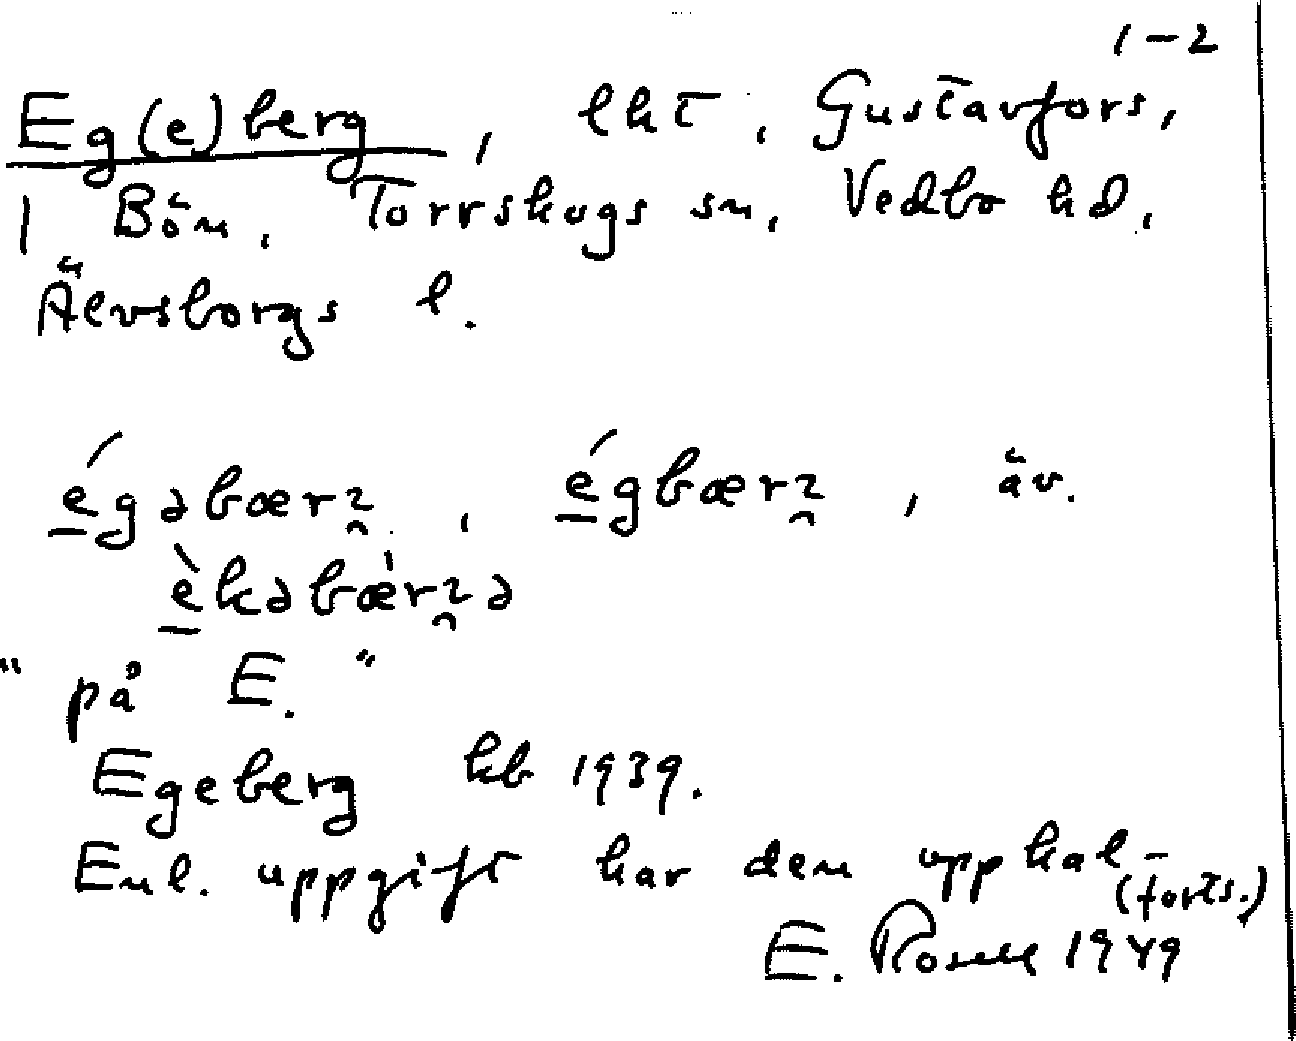 1-2
Eg(e)berg, lht, Gustavfors,
1 Bön, Torrskogs sn, Vedbo hd,
Älvsborgs l.
égəbærʒ, égbærʒ, äv.
èkəbæ̀rʒə
"på E."
Egeberg kb 1939.
Enl. uppgift har den upp kal-
(forts.)
E. Rosell 1949